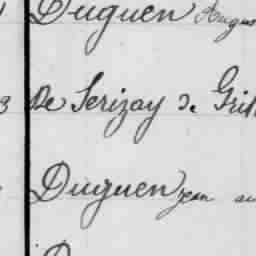 Duguen Augus
3 De Serizay De Gri
Duguen jean au